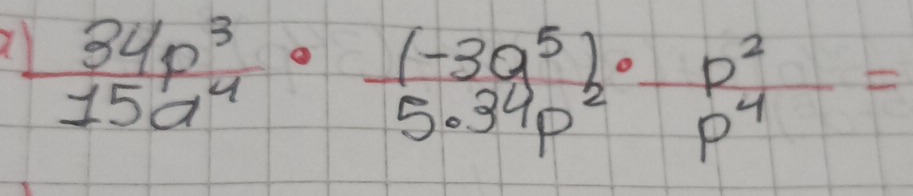 a) 34p³/15a⁴ • (-3a⁵)/5.34p² • p²/p⁴ =